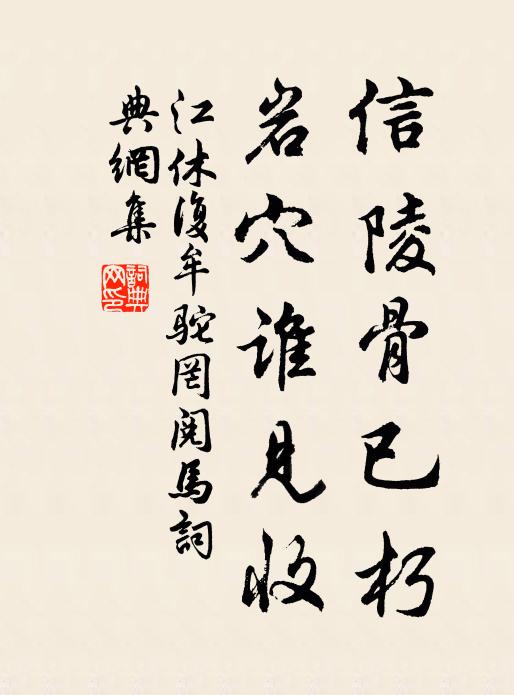 信陵骨已朽
岩穴谁見收
江休復牟駝罔閱馬詞
典網集
詞典網印